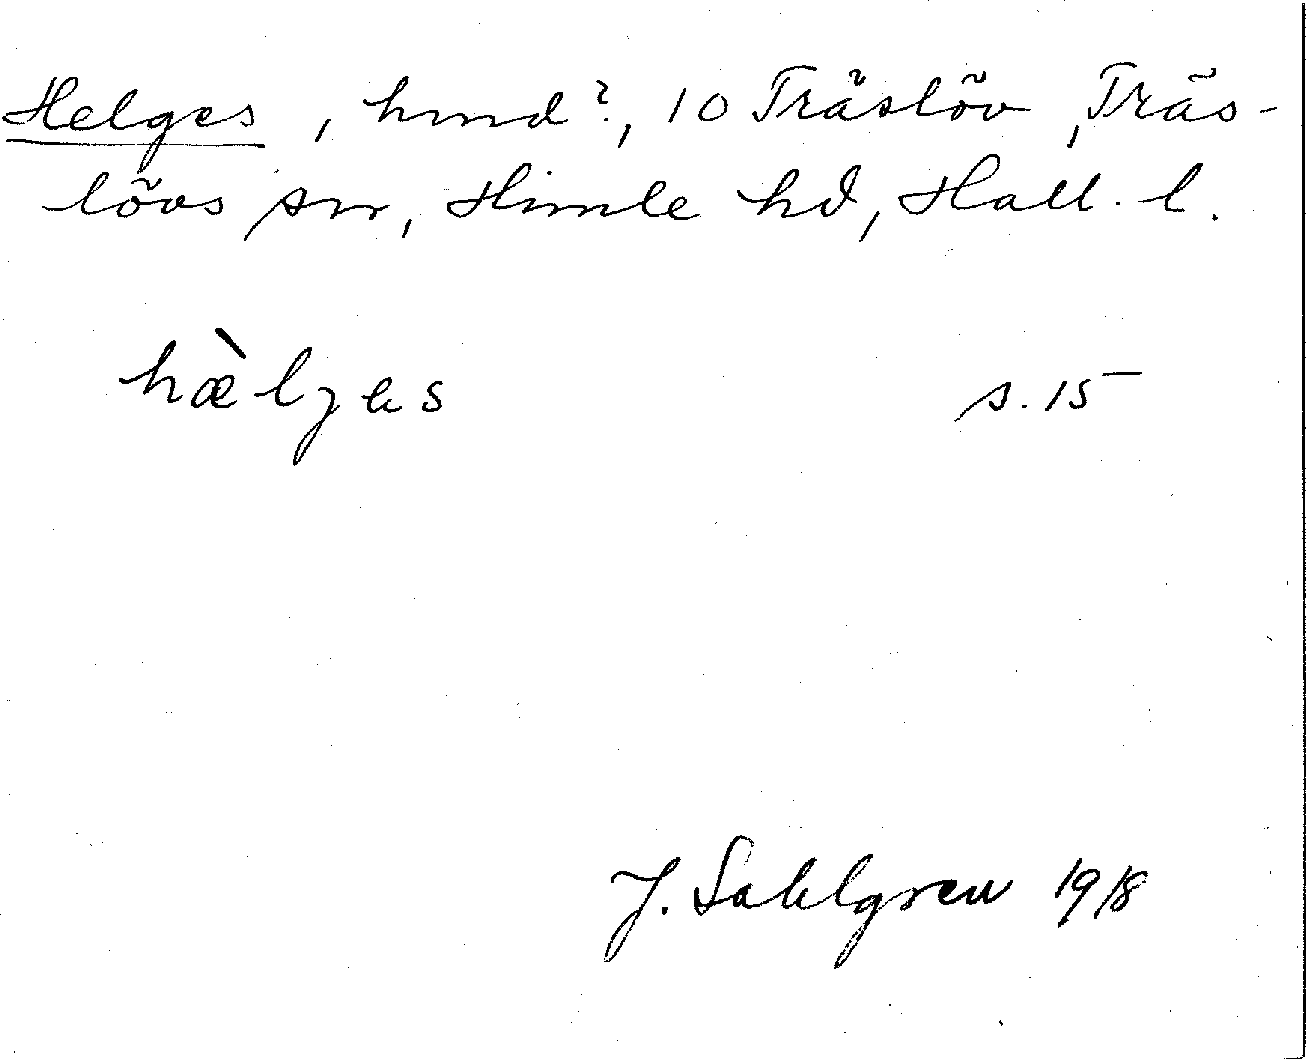 Helges, hmd?, 10 Träslöv, Träs-
lövs sn, Himle hd, Hall. l.
hæ̀lgɐs s. 15
J. Sahlgren 1918